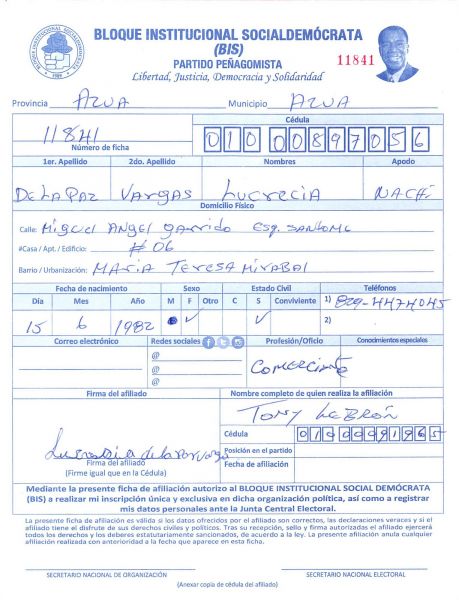 BLOQUE INSTITUCIONAL SOCIALDEMÓCRATA
(BIS)
PARTIDO PEÑAGOMISTA
11841
Libertad, Justicia, Democracia y Solidaridad
Provincia AZUA Municipio AZUA
11841
Número de ficha
Cédula
010 0089705 6
1er. Apellido 2do. Apellido Nombres Apodo
DE LA PAZ VARGAS LUCRECIA NACHI
Domicilio Físico
Calle: Miguel Angel Garrido Esq. SANTOME
#Casa / Apt. / Edificio: # 06
Barrio / Urbanización: MARIA TERESA MIRABAL
Fecha de nacimiento Sexo Estado Civil Teléfonos
Día Mes Año M F Otro C S Conviviente 1) 829-4474045
15 6 1982 2)
Correo electrónico Redes sociales Profesión/Oficio Conocimientos especiales
@
@
@
COMERCIANTE
Firma del afiliado Nombre completo de quien realiza la afiliación
TONY LEBRÓN
Cédula
Lucrecia de la Paz Vargas
Firma del afiliado
(Firme igual que en la Cédula)
Posición en el partido
Fecha de afiliación
Mediante la presente ficha de afiliación autorizo al BLOQUE INSTITUCIONAL SOCIAL DEMÓCRATA
(BIS) a realizar mi inscripción única y exclusiva en dicha organización política, así como a registrar
mis datos personales ante la Junta Central Electoral.
La presente ficha de afiliación es válida si los datos ofrecidos por el afiliado son correctos, las declaraciones veraces y si el
afiliado tiene el disfrute de sus derechos civiles y políticos. Tras su recepción, sello y firma autorizados el afiliado ejercerá
todos los derechos y los deberes estatutariamente sancionados, de acuerdo a la ley. La presente afiliación anula cualquier
afiliación realizada con antorioridad a la fecha que aparece en esta ficha.
SECRETARIO NACIONAL DE ORGANIZACIÓN SECRETARIO NACIONAL ELECTORAL
(Anexar copia de cédula del afiliado)